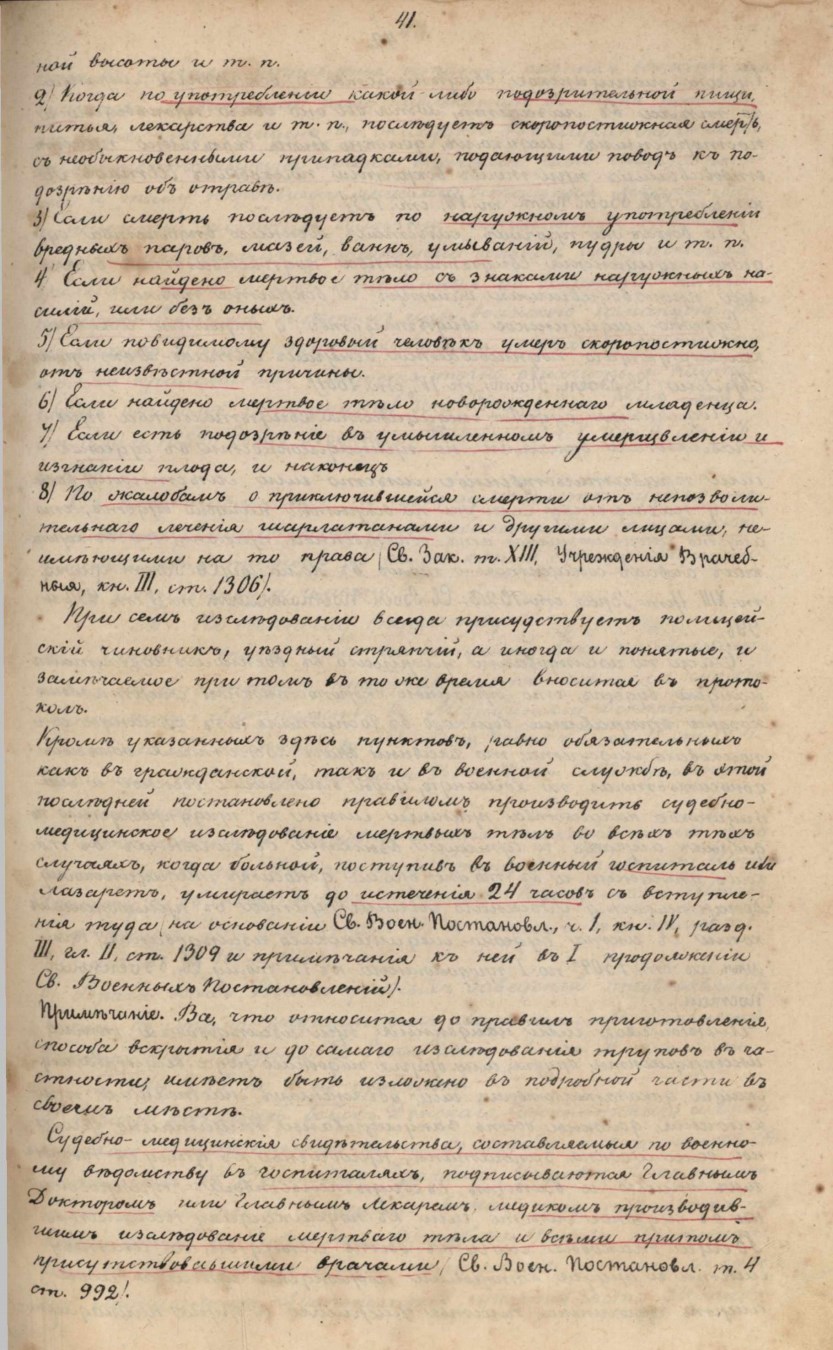 41.
ной высоты и т. п.
2) Когда по употребленіи какой-либо подозрительной пищи,
питья, лекарства и т. п., послѣдуетъ скоропостижная смерть,
съ необыкновенными припадками, подающими поводъ къ по-
дозрѣнію объ отравѣ.
3) Если смерть послѣдуетъ по наружномъ употребленіи
вредныхъ паровъ, мазей, ваннъ, умываній, пудры и т. п.
4 Если найдено мертвое тѣло съ знаками наружныхъ на-
силій, или безъ оныхъ.
5) Если повидимому здоровый человѣкъ умеръ скоропостижно,
отъ неизвѣстной причины.
6) Если найдено мертвое тѣло новорожденнаго младенца.
7) Если есть подозрѣніе въ умышленномъ умерщвленіи и
изгнаніи плода, и наконецъ
8) По жалобамъ о приключившейся смерти отъ непозволи-
тельнаго леченія шарлатанами и другими лицами, не-
имѣющими на то права (Св. Зак. т. XIII, Учрежденія Врачеб-
ныя, кн. III, ст. 1306).
При семъ изслѣдованіи всегда присудствуетъ полицей-
скій чиновникъ, уѣздный стряпчій, а иногда и понятые, и
замѣчаемое при томъ въ то же время вносится въ прото-
колъ.
Кромѣ указанныхъ здѣсь пунктовъ, равно обязательныхъ
какъ въ гражданской, такъ и въ военной службѣ, въ этой
послѣдней постановлено правиломъ производить судебно-
медицинское изслѣдованіе мертвыхъ тѣлъ во всѣхъ тѣхъ
случаяхъ, когда больной, поступивъ въ военный госпиталь или
лазаретъ, умираетъ до истеченія 24 часовъ съ вступле-
нія туда (на основаніи Св. Воен. Постановл., ч. I, кн. IV, разд.
III, гл. II, ст. 1309 и примѣчанія къ ней въ I продолженіи
Св. Военныхъ Постановленій).
Примѣчаніе. Все, что относится до правилъ приготовленія,
способа вскрытія и до самаго изслѣдованія труповъ въ ча-
стности, имѣетъ быть изложено въ подробной части въ
своемъ мѣстѣ.
Судебно-медицинскія свидѣтельства, составляемыя по военно-
му вѣдомству въ госпиталяхъ, подписываются Главнымъ
Докторомъ или Главнымъ Лекаремъ, медикомъ производив-
шимъ изслѣдованіе мертваго тѣла и всѣми притомъ
присутствовавшими врачами (Св. Воен. Постановл. т. 4
ст. 992).